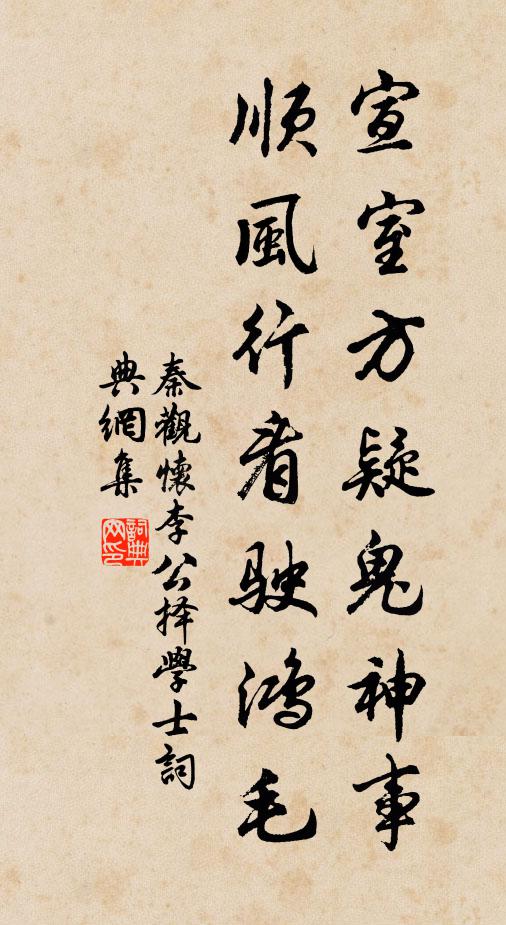 宣室方疑鬼神事
順風行看駛鴻毛
秦觀懷李公择學士詞
典網集
詞典网印